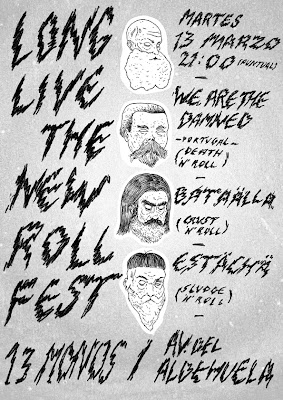 LONG
LIVE
THE
NEW
ROLL
FEST
MARTES
13 MARZO
21:00 (PUNTUAL)
WE ARE THE
DAMNED
-PORTUGAL-
(DEATH
'N'ROLL)
BATAÄLLA
(CRUST
'N'ROLL)
ESTACHÄ
(SLUDGE
'N'ROLL)
13 MONOS / AV. DEL
ALDEHUELA